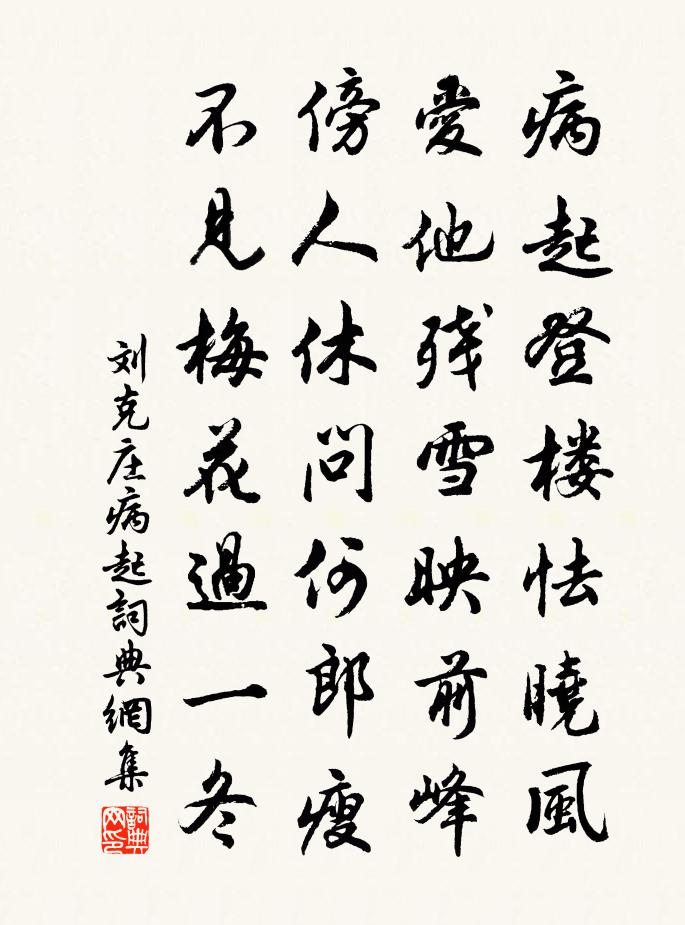 病起登楼怯曉風
愛他残雪映前峰
傍人休問何郎瘦
不見梅花過一冬
刘克庄病起詞典網集
詞典网印